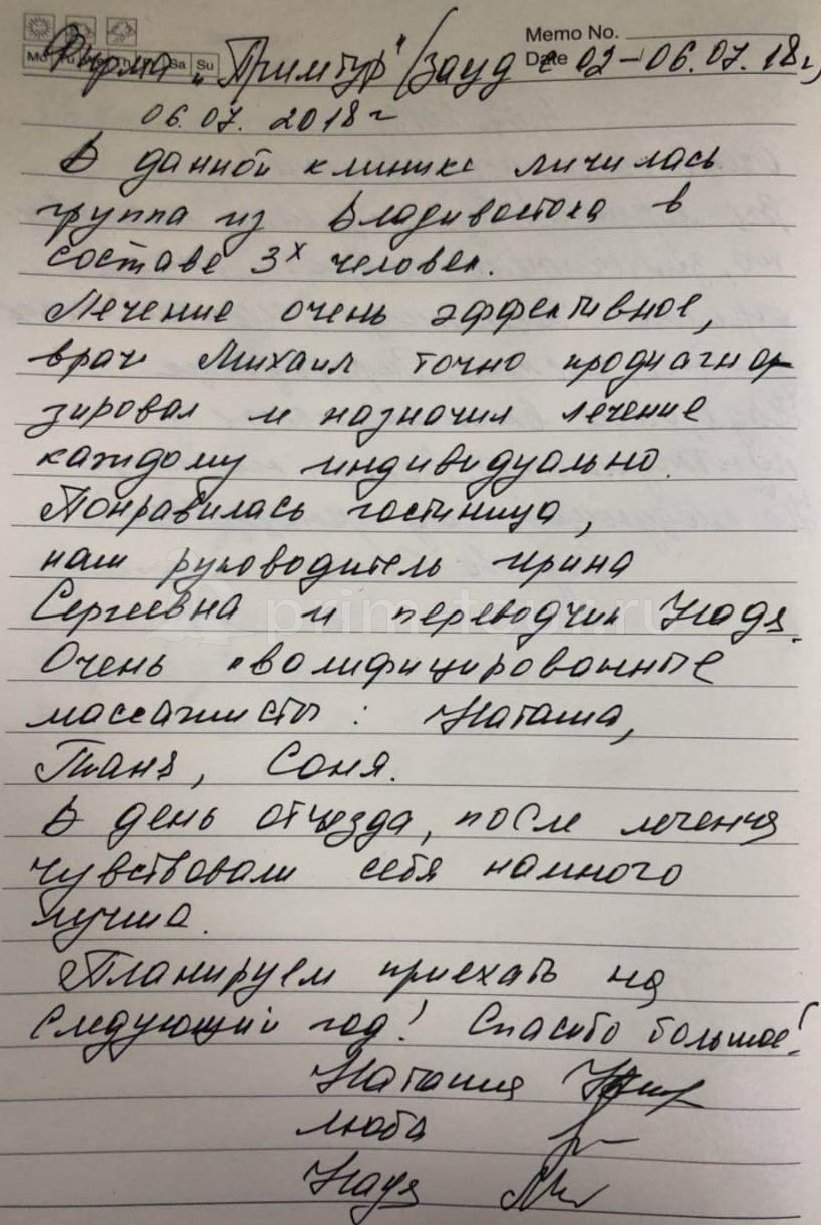 Memo No.
Mo Sa Su Date
Фирма "Примтур" (заезд с 02-06.07.18г)
06.07.2018г
В данной клинике личилась
группа из Владивостока в
составе 3х человек.
Лечение очень эффективное,
врач Михаил точно продиагно
зировал и назначил лечение
каждому индивидуально.
Понравилась гостиница,
наш руководитель Ирина
Сергеевна и переводчик Надя.
primetour.ru
Очень квалифицированные
массажисты: Наташа,
Таня, Соня.
В день отъезда, после лечения
чувствовали себя намного
лучше.
Планируем приехать на
следующий год! Спасибо большое!
Наталия
Люба
Надя